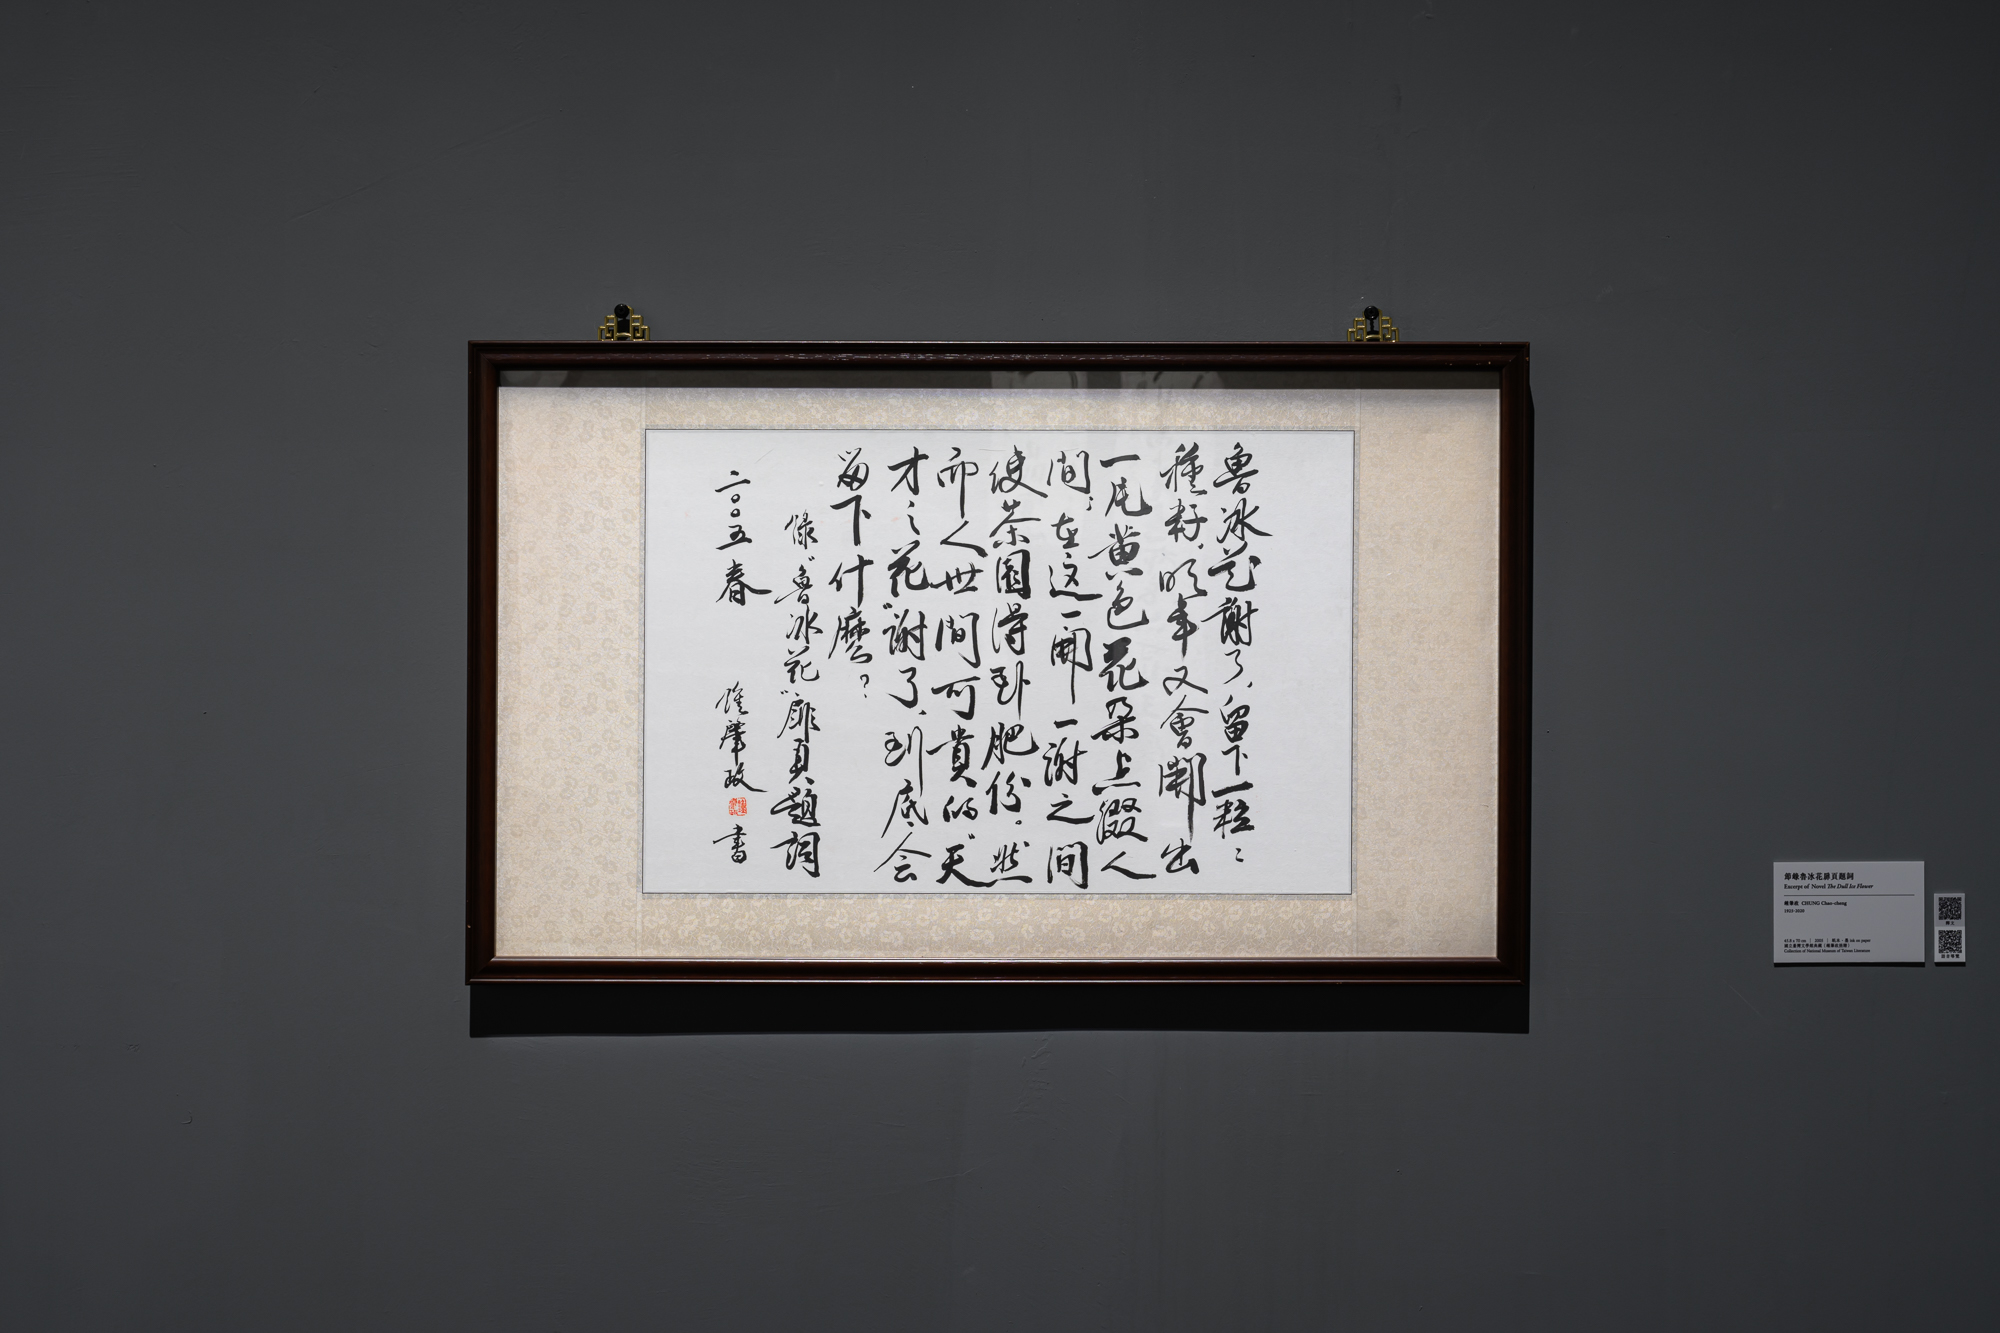 魯冰花謝了，留下一粒々
種籽，明年又會開出
一尾黃色花朵点綴人
間；在這一開一謝之間
使茶園得到肥份。然
而人世間可貴的“天
才之花”謝了，到底会
留下什麼？
錄“魯冰花”扉頁題詞
二〇〇五春 鍾肇政 書
鍾肇政
Excerpt of Novel The Dull Ice Flower
鍾肇政 CHUNG Chao-cheng
1925-2020
Collection of National Museum of Taiwan Literature